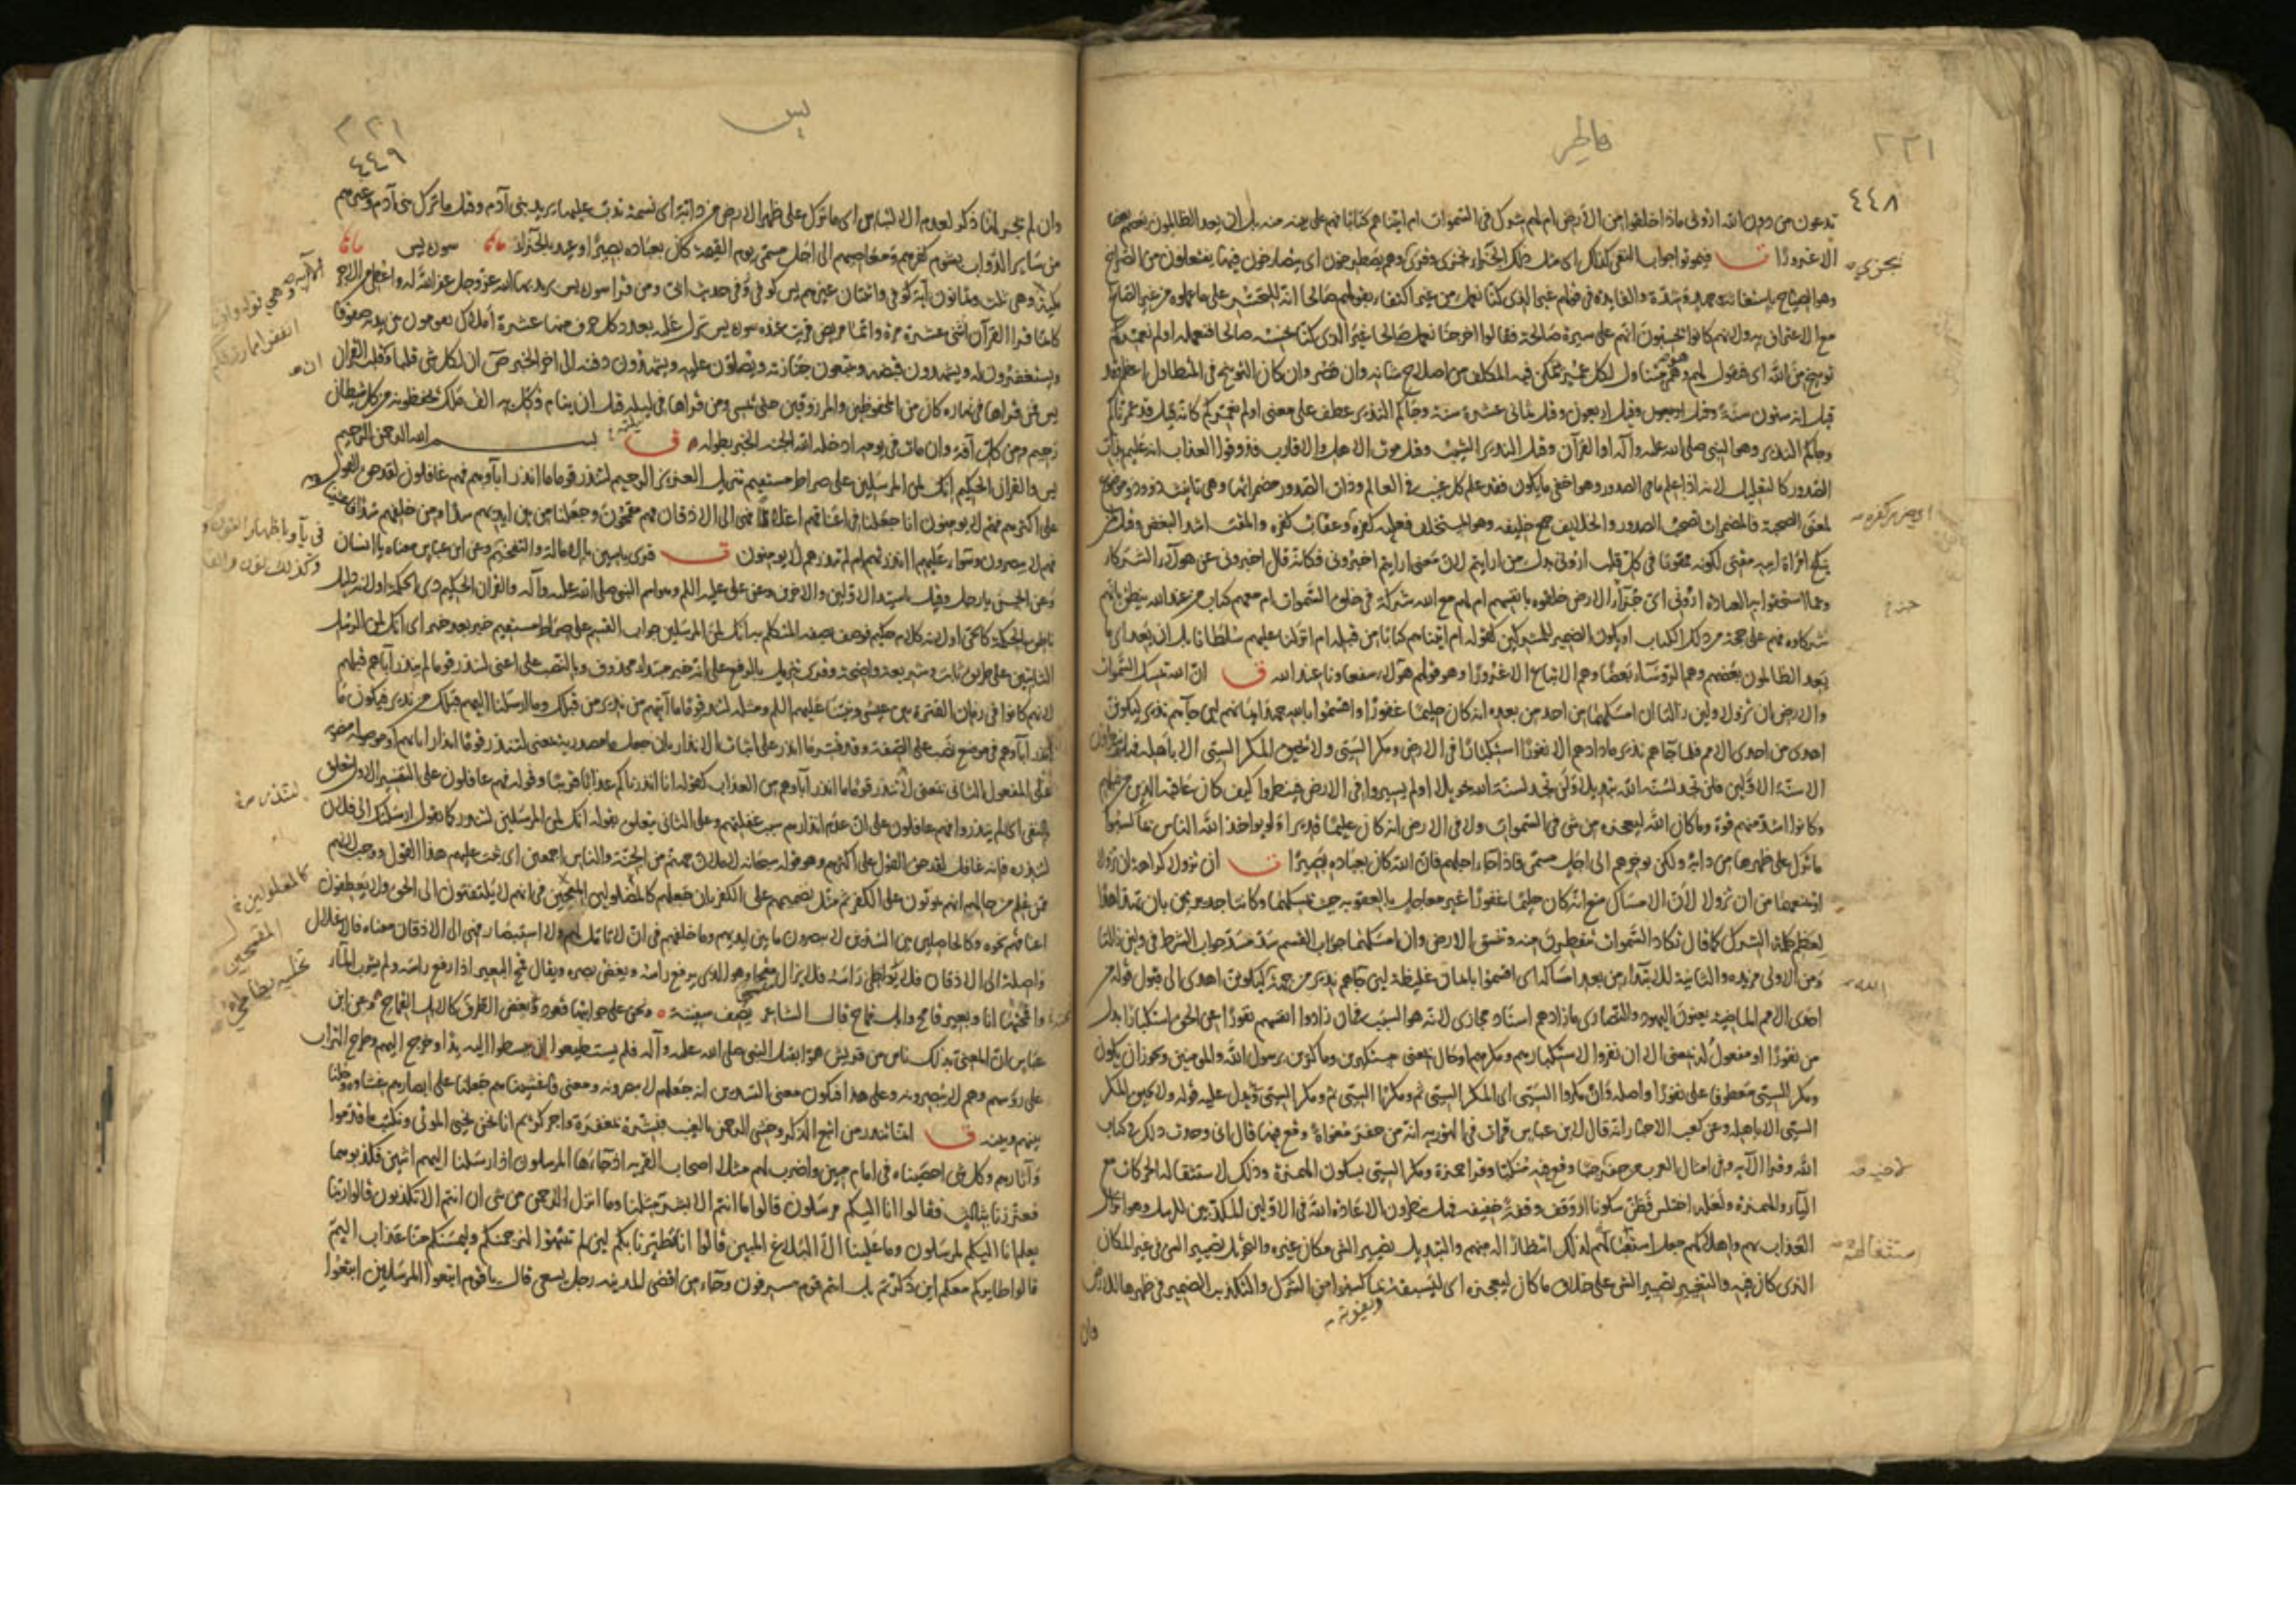 فاطر
٢٢١
٤٤٨
تدعون من دون الله اروني ماذا خلقوا من الارض ام لهم شرك في السموات ام اتيناهم كتابا فهم على بينة منه بل ان يعد الظالمون بعضهم بعضا
الا غرورا فيموتوا جواب النفي كذلك اي مثل ذلك الجزاء نجزي وقرئ وهم يصطرخون اي يتصارخون فيها يفتعلون من الصراخ
وهو الصياح باستغاثة وشدة والفايدة في قولهم غير الذي كنا نعمل من غير اكتفاء بقولهم صالحا انه للتحسر على ما عملوه من غير الصالح
مع الاعتراف به ولانهم كانوا يحسبون انهم على سيرة صالحة فقالوا اخرجنا نعمل صالحا غير الذي كنا نحسبه صالحا فنعمله اولم نعمركم
توبيخ من الله اي فنقول لهم وهو متناول لكل عمر تمكن فيه المكلف من اصلاح شانه وان قصر وان كان التوبيخ في المتطاول اعظم
قيل انه ستون سنة وقيل اربعون وقيل ثماني عشرة سنة وجاكم النذير عطف على معنى اولم نعمركم كانه قيل قد عمرناكم
وجاكم النذير وهو النبي صلى الله عليه وآله او القرآن وقيل النذير الشيب وقيل موت الاهل والاقارب فذوقوا العذاب انه عليم بذات
الصدور كالتعليل لانه اذا علم ما في الصدور وهو اخفى ما يكون فقد علم كل غيب في العالم وذات الصدور مضمراتها وهي تانيث ذو
لمعنى الصحبة فالمضمرات تصحب الصدور والخلايف جمع خليفة وهو المستخلف فعليه كفره وعقاب كفره والمقت اشد البغض
شركاوه فهم على حجة من ذلك الكتاب او يكون الضمير للمشركين كقوله ام آتيناهم كتابا من قبله ام انزلنا عليهم سلطانا بل ان يعد اي ما
يعد الظالمون بعضهم وهم الروساء بعضا وهم الاتباع الا غرورا وهو قولهم هولاء شفعاونا عند الله ان الله يمسك السموات
والارض ان تزولا ولين زالتا ان امسكهما من احد من بعده انه كان حليما غفورا واقسموا بالله جهد ايمانهم لين جاهم نذير ليكونن
اهدى من احدى الامم فلما جاهم نذير ما زادهم الا نفورا استكبارا في الارض ومكر السيئ ولا يحيق المكر السيئ الا باهله فهل ينظرون
الا سنة الاولين فلن تجد لسنة الله تبديلا ولن تجد لسنة الله تحويلا اولم يسيروا في الارض فينظروا كيف كان عاقبة الذين من قبلهم
وكانوا اشد منهم قوة وما كان الله ليعجزه من شي في السموات ولا في الارض انه كان عليما قديرا ولو يواخذ الله الناس بما كسبوا
ما ترك على ظهرها من دابة ولكن يوخرهم الى اجل مسمى فاذا جاء اجلهم فان الله كان بعباده بصيرا ان تزولا كراهة ان تزولا
او يمنعهما من ان تزولا لان الامساك منع انه كان حليما غفورا غير معاجل بالعقوبة حيث يمسكهما وكانتا جديرتين بان تهدا هدا
لعظم كلمة الشرك كما قال تكاد السموات يتفطرن منه وتنشق الارض وان امسكهما جواب القسم سد مسد جواب الشرط في ولين زالتا
ومن الاولى مزيدة والثانية للابتداء من بعده اي من بعد امساكه اي اقسموا بايمان غليظة لين جاهم نذير من جهة الله ليكونن اهدى الى قبول قوله من
احدى الامم الماضية يعنون اليهود والنصارى ما زادهم اسناد مجازى لانه هو السبب في ان زادوا انفسهم نفورا عن الحق استكبارا بدل
من نفورا او مفعول له بمعنى الا ان نفروا لاستكبارهم ومكرهم او حال بمعنى مستكبرين وماكرين برسول الله والمومنين ويجوز ان يكون
ومكر السيئ معطوفا على نفورا واصله وان مكروا السيئ اي المكر السيئ ثم ومكرا السيئ ثم ومكر السيئ ويدل عليه قوله ولا يحيق المكر
السيئ الا باهله وعن كعب الاحبار انه قال لابن عباس قرات في التورية انه من حفر مغواة وقع فيها قال اني وجدت ذلك في كتاب
الله وقرا الآية وفي امثال العرب من حفر جبا وقع فيه منكبا وقرا حمزة ومكر السيئ بسكون الهمزة وذلك لاستثقاله الحركات مع
الياء والهمزة ولعله اختلس فظن سكونا او وقف وقفة خفيفة فهل ينظرون الا عادة الله في الاولين المكذبين للرسل وهو انزال
العذاب بهم واهلاكهم جعل استقبالهم لذلك انتظارا له منهم والتبديل تصيير الشي مكان غيره والتحويل تصيير الشي في غير المكان
الذي كان فيه والتغيير تصيير الشي على خلاف ما كان ليعجزه اي ليسبقه بما كسبوا من الشرك والتكذيب الضمير في ظهرها للارض
وان
نجزي
الله
يس
٢٢١
٤٤٩
وان لم يجر لها ذكر لعدم الالتباس اي ما ترك على ظهر الارض من دابة اي نسمة تدب عليها يريد بني آدم وقيل ما ترك بني آدم وغيرهم
من ساير الدواب بشوم كفرهم ومعاصيهم الى اجل مسمى يوم القيمة كان بعباده بصيرا وعيد بالجزاء سورة يس
مكية وهي ثلث وثمانون آية كوفي واثنتان غيرهم يس كوفي وفي حديث ابي ومن قرا سورة يس يريد بها الله عز وجل غفر الله له واعطي من الاجر
كانما قرا القرآن اثنتي عشرة مرة وايما مريض قريت عنده سورة يس نزل عليه بعدد كل حرف منها عشرة املاك يقومون بين يديه صفوفا
ويستغفرون له ويشهدون قبضه ويتبعون جنازته ويصلون عليه ويشهدون دفنه الى آخر الخبر ان لكل شي قلبا وقلب القرآن
يس فمن قراها في نهاره كان من المحفوظين والمرزوقين حتى يمسي ومن قراها في ليله قبل ان ينام وكل به الف ملك يحفظونه من كل شيطان
رجيم ومن كل آفة وان مات في يومه ادخله الله الجنة الخبر بطوله ق بسم الله الرحمن الرحيم
يس والقرآن الحكيم انك لمن المرسلين على صراط مستقيم تنزيل العزيز الرحيم لتنذر قوما ما انذر آباوهم فهم غافلون لقد حق القول
على اكثرهم فهم لا يومنون انا جعلنا في اعناقهم اغلالا فهي الى الاذقان فهم مقمحون وجعلنا من بين ايديهم سدا ومن خلفهم سدا فاغشيناهم
فهم لا يبصرون وسواء عليهم اانذرتهم ام لم تنذرهم لا يومنون قرئ يا سين بالامالة والتفخيم وعن ابن عباس معناه يا انسان
وعن الحسن يا رجل وقيل يا سيد الاولين والآخرين وعن علي عليه السلم هو اسم النبي صلى الله عليه وآله والقرآن الحكيم ذي الحكمة او لانه دليل
ناطق بالحكمة كالحي او لانه كلام حكيم فوصف بصفة المتكلم به انك لمن المرسلين جواب القسم على صراط مستقيم خبر بعد خبر اي انك لمن المرسلين
الثابتين على طريق ثابت وشريعة واضحة وقرئ تنزيل بالرفع على انه خبر مبتدا محذوف وبالنصب على اعني لتنذر قوما لم ينذر آباهم قبلهم
لانهم كانوا في زمان الفترة بين عيسى ونبينا عليهما السلم ومثله لتنذر قوما ما آتيهم من نذير من قبلك وما ارسلنا اليهم قبلك من نذير فيكون ما
على المفعول الثاني بمعنى لتنذر قوما ما انذر آباوهم من العذاب كقوله انا انذرناكم عذابا قريبا وقوله فهم غافلون على التفسير الاول متعلق
بالنفي اي لم ينذروا فهم غافلون على ان عدم انذارهم سبب غفلتهم وعلى الثاني يتعلق بقوله انك لمن المرسلين لتنذر كما تقول ارسلتك الى فلان
لتنذره فانه غافل لقد حق القول على اكثرهم وهو قوله سبحانه لاملان جهنم من الجنة والناس اجمعين اي ثبت عليهم هذا القول ووجب لانهم
ممن علم من حالهم انهم يموتون على الكفر ثم مثل تصميمهم على الكفر بان جعلهم كالمغلولين المقمحين في انهم لا يلتفتون الى الحق ولا يعطفون
اعناقهم نحوه وكالحاصلين بين السدين لا يبصرون ما بين ايديهم وما خلفهم في ان لا تامل لهم ولا استبصار فهي الى الاذقان معناه فالاغلال
واصلة الى الاذقان فلا يطاطي راسه فلا يزال مقمحا وهو الذي يرفع راسه ويغض بصره ويقال قمح البعير اذا رفع راسه ولم يشرب الماء
واقمحتها انا وبعير قامح وابل قماح قال الشاعر يصف سفينة ونحن على جوانبها قعود نغض الطرف كالابل القماح وعن ابن
عباس ان المعنى بذلك ناس من قريش هموا بقتل النبي صلى الله عليه وآله فلم يستطيعوا ان يبسطوا اليه يدا وخرج اليهم وطرح التراب
على روسهم وهم لا يبصرونه وعلى هذا فيكون معنى السدين انه جعلهم لا يبصرونه ومعنى فاغشيناهم جعلنا على ابصارهم غشاوة وحلنا
بينهم وبينه ق انما تنذر من اتبع الذكر وخشي الرحمن بالغيب فبشره بمغفرة واجر كريم انا نحن نحيي الموتى ونكتب ما قدموا
وآثارهم وكل شي احصيناه في امام مبين واضرب لهم مثلا اصحاب القرية اذ جاءها المرسلون اذ ارسلنا اليهم اثنين فكذبوهما
فعززنا بثالث فقالوا انا اليكم مرسلون قالوا ما انتم الا بشر مثلنا وما انزل الرحمن من شي ان انتم الا تكذبون قالوا ربنا
يعلم انا اليكم لمرسلون وما علينا الا البلاغ المبين قالوا انا تطيرنا بكم لين لم تنتهوا لنرجمنكم وليمسنكم منا عذاب اليم
قالوا طايركم معكم اين ذكرتم بل انتم قوم مسرفون وجاء من اقصى المدينة رجل يسعى قال يا قوم اتبعوا المرسلين اتبعوا
كالمغلولين
المقمحين